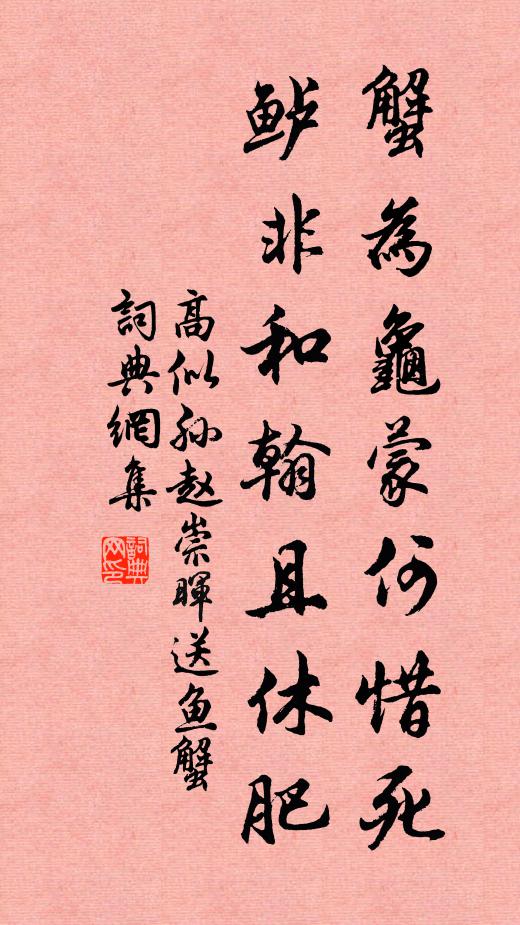 蟹為龜蒙何惜死
鲈非和翰且休肥
高似孙赵崇暉送鱼蟹
詞典網集
詞典
网印